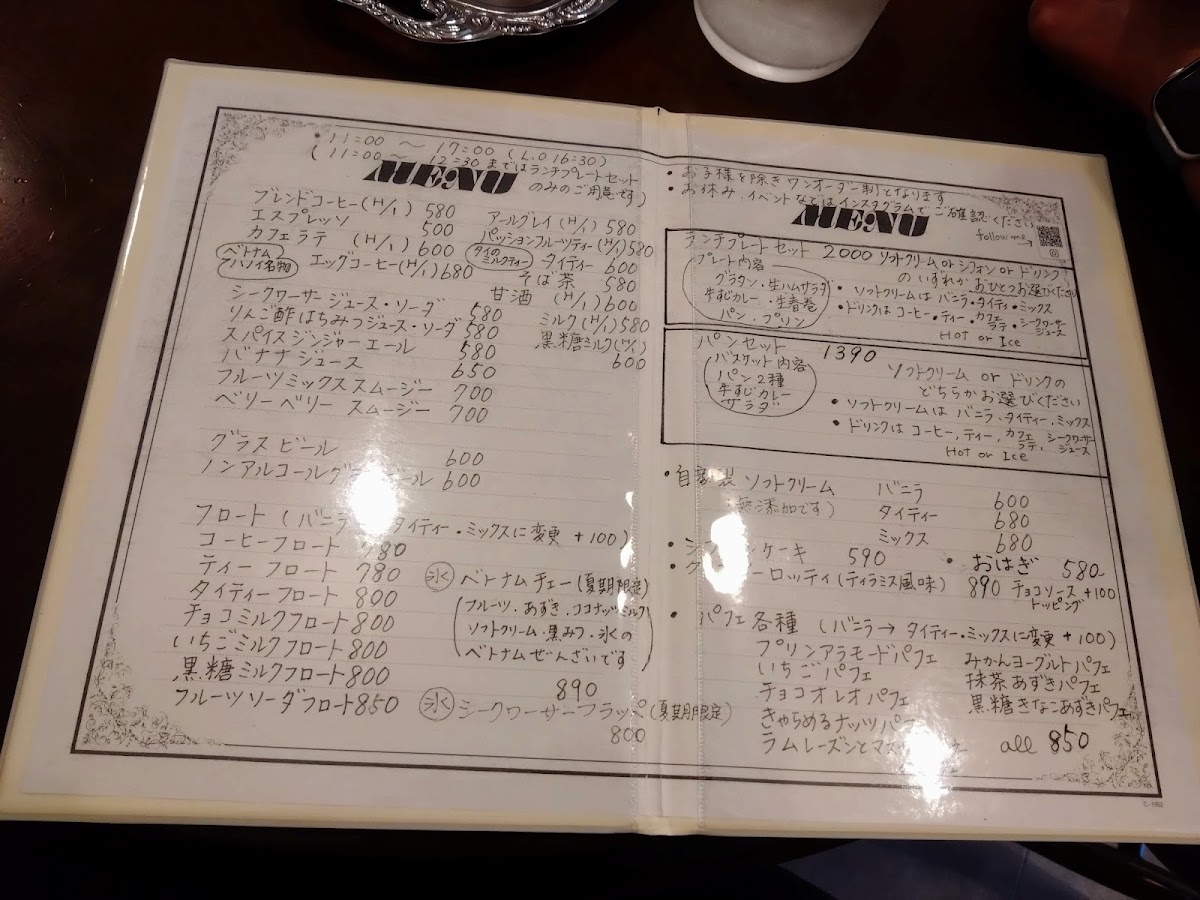 ・11:00 〜 17:00 (L.O 16:30)
(11:00〜 12:30 まではランチプレートセット
のみのご用意です)
MENU
ブレンドコーヒー(H/I) 580
エスプレッソ 500
カフェラテ (H/I) 600
ベトナム
ハノイ名物
エッグコーヒー(H/I) 680
アールグレイ (H/I) 580
パッションフルーツティー(H/I) 580
タイの
ミルクティー
タイティー 600
そば茶 580
甘酒 (H/I) 600
ミルク(H/I) 580
黒糖ミルク(H/I)
600
シークワーサージュース・ソーダ 580
りんご酢はちみつジュース・ソーダ 580
スパイスジンジャーエール 580
バナナジュース 650
フルーツミックススムージー 700
ベリーベリースムージー 700
グラスビール 600
ノンアルコール 600
フロート ( バニラ タイティー・ミックスに変更 +100)
コーヒーフロート 780
ティーフロート 780
タイティーフロート 800
チョコミルクフロート 800
いちごミルクフロート 800
黒糖ミルクフロート 800
フルーツソーダフロート 850
氷 ベトナムチェー (夏期限定)
フルーツ・あずき・ココナッツミルク
ソフトクリーム・黒みつ・氷の
ベトナムぜんざいです
890
氷 シークワーサーフラッペ (夏期限定)
800
・お子様を除きワンオーダー制となります
・お休み、イベントなどはインスタグラムでご確認ください
MENU
follow me
ランチプレートセット 2000 ソフトクリーム or シフォン or ドリンク
のいずれかおひとつお選びください
プレート内容
グラタン・生ハムサラダ
牛すじカレー・生春巻
パン、プリン
・ソフトクリームは バニラ・タイティ・ミックス
・ドリンクは コーヒー・ティー・カフェラテ・シークワーサージュース
Hot or Ice
パンセット 1390
バスケット内容
パン2種
牛すじカレー
サラダ
ソフトクリーム or ドリンクの
どちらかお選びください
・ソフトクリームは バニラ、タイティー、ミックス
・ドリンクは コーヒー、ティー、カフェラテ、シークワーサージュース
Hot or Ice
・自家製 ソフトクリーム バニラ 600
(無添加です) タイティー 680
ミックス 680
ケーキ 590
・おはぎ 580
ーロッティ (ティラミス風味) 890 チョコソース +100
トッピング
・パフェ各種 (バニラ→タイティー・ミックスに変更 +100)
プリンアラモードパフェ
いちごパフェ
チョコオレオパフェ
きゃらめるナッツパフェ
ラムレーズンとマス
みかんヨーグルトパフェ
抹茶あずきパフェ
黒糖きなこあずきパフェ
all 850